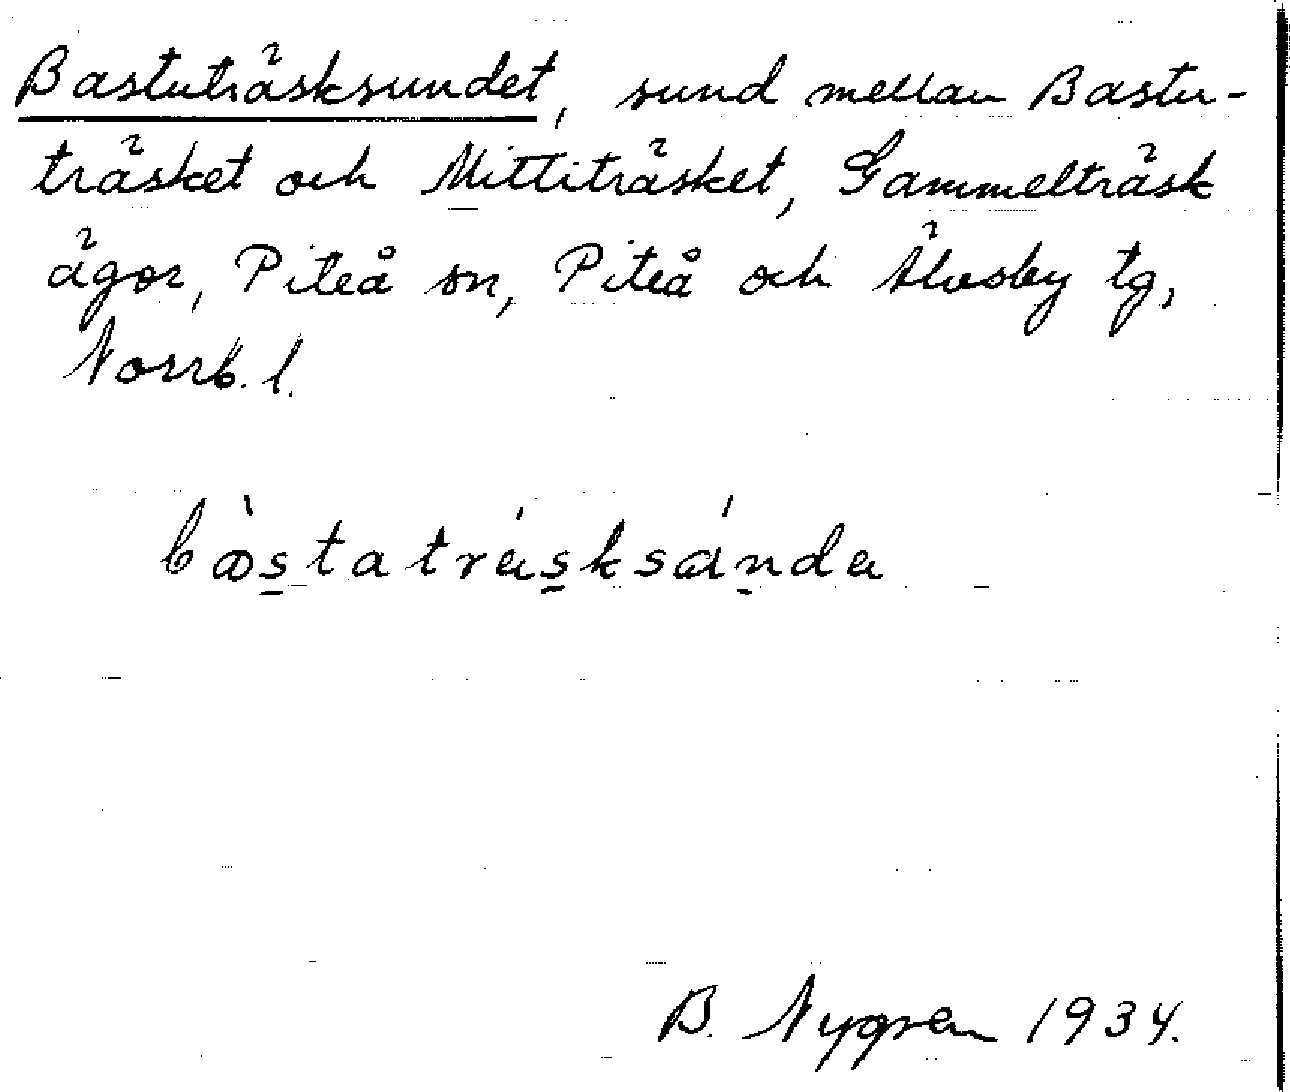 Bastuträsksundet, sund mellan Bastu-
träsket och Mittiträsket, Gammelträsk
ägor, Piteå sn, Piteå och Älvsby tg,
Norrb. l.
bàstatrásksánda
B. Nygren 1934.